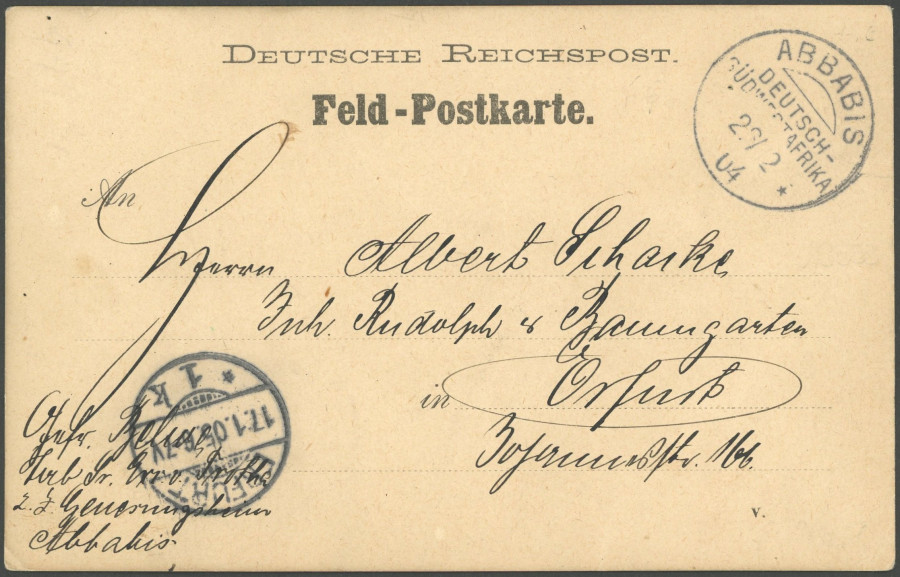 DEUTSCHE REICHSPOST.
Feld-Postkarte.
ABBABIS
DEUTSCH-
SÜDWESTAFRIKA
2 04
An
Herrn Albert Scharke
Inh. Rudolph & Baumgarten
in Erfurt
Johannesstr. 166.
ERFURT
17.1.05.6-7V.
* 1 k
Gefr.
z. Z. Genesungsheim
Abbabis
v.